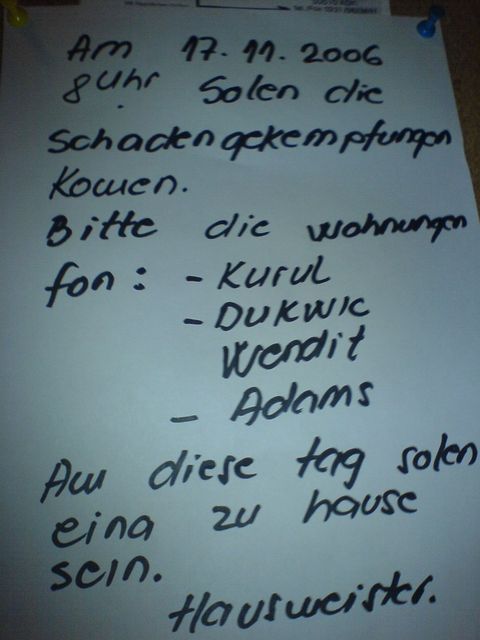 Am 17.11.2006
8 Uhr Solen die
Schadengekempfungen
Komen.
Bitte die wohnungen
fon: - Kurul
- DUKWIC
Wendit
- Adams
Am diese tag solen
eina zu hause
sein.
Hausmeister.